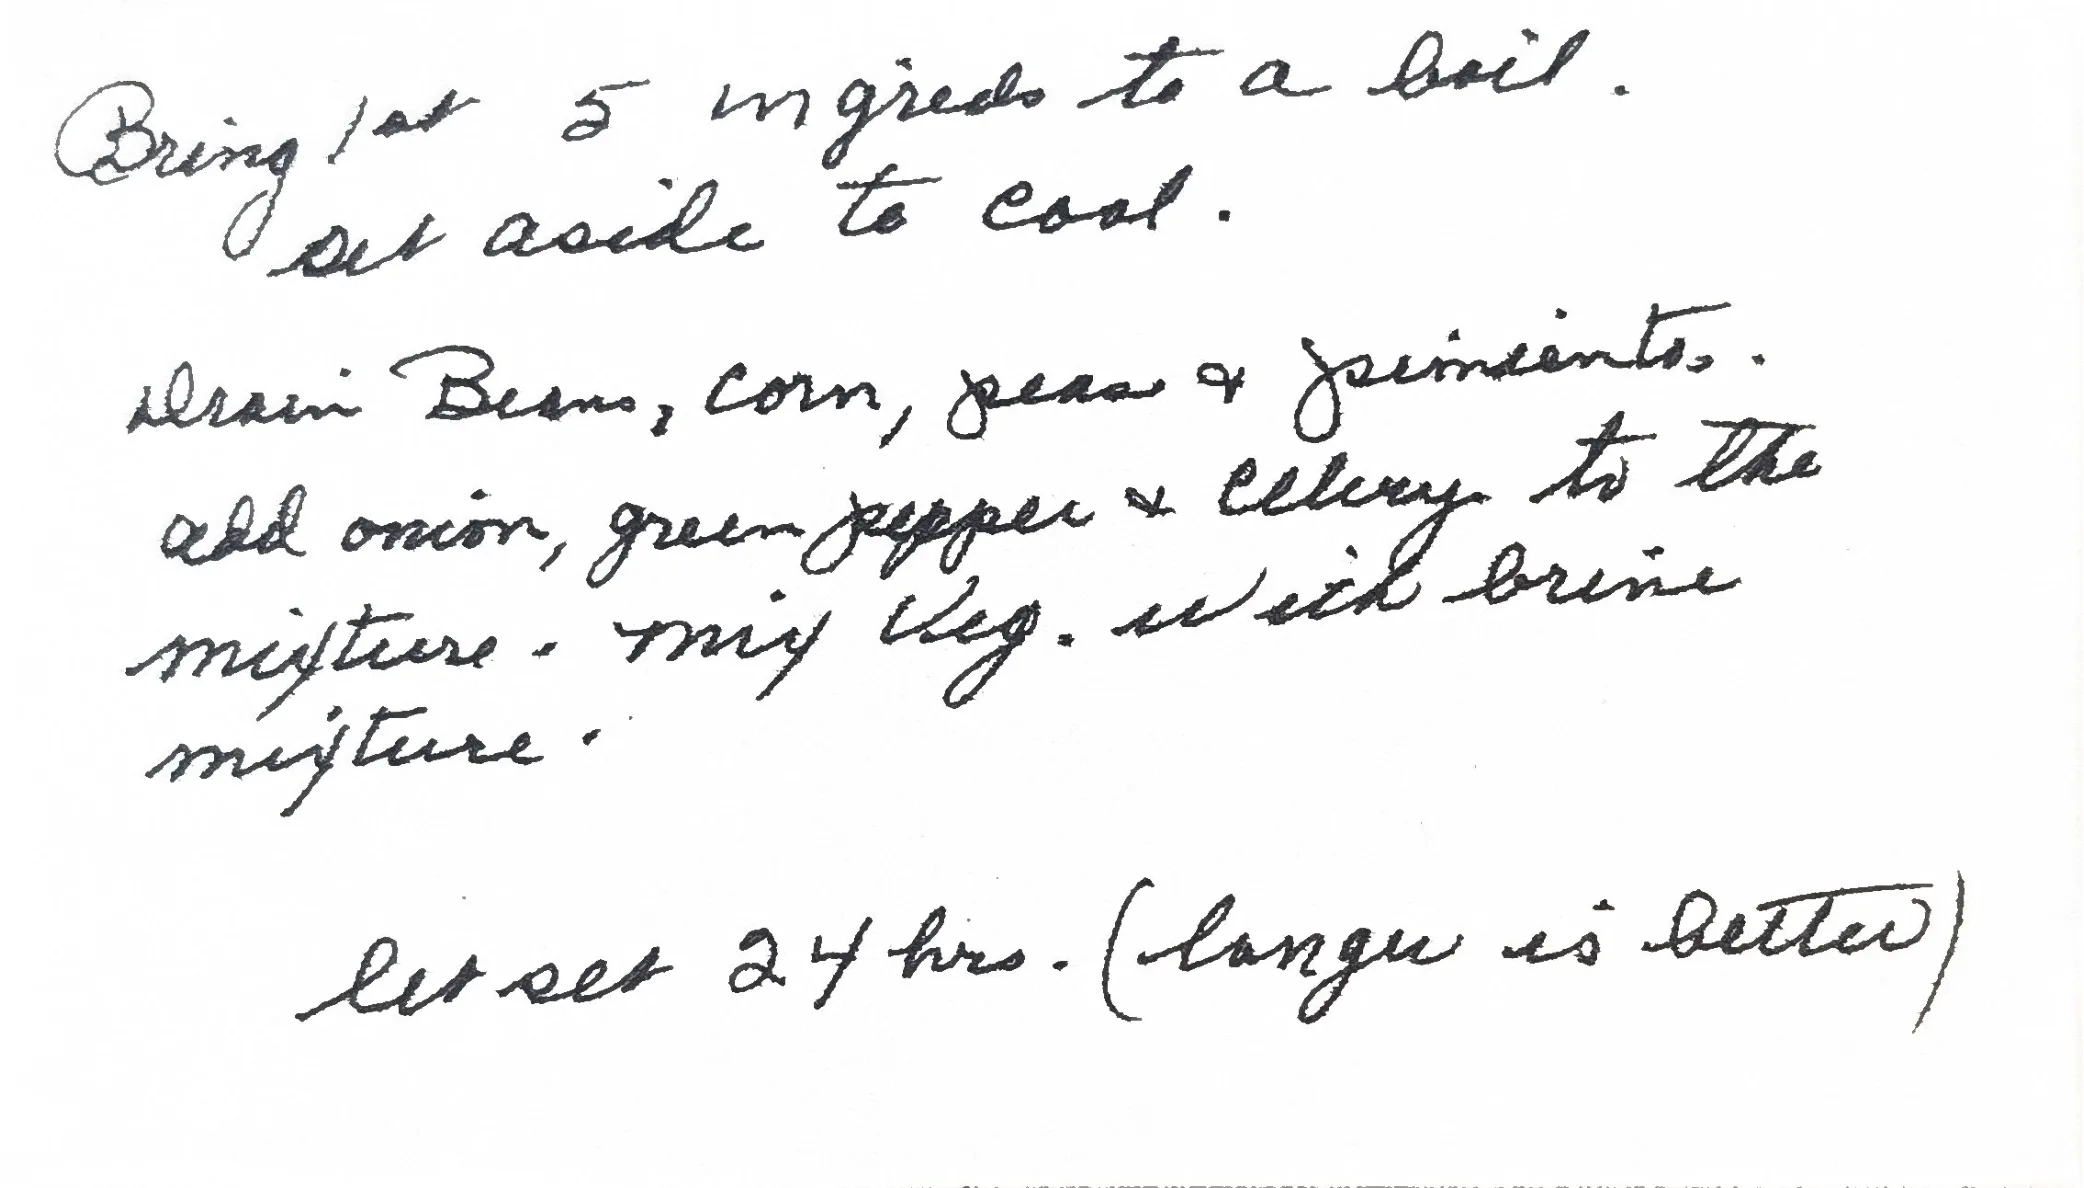 Bring 1st 5 ingreds to a boil.
set aside to cool.
Drain Beans, corn, peas & pimientos.
add onion, green pepper & celery to the
mixture. mix Veg. with brine
mixture.
let set 24 hrs. (longer is better)